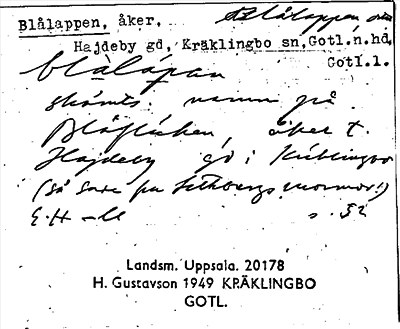 Blålappen, åker,
Blålappen
Hajdeby gd, Kräklingbo sn, Gotl.n.hd,
Gotl.l.
blålapan
skämts. namn på
Blåfläcken, åker t.
Hajdeby gd i Kräklingbo
(så sade fru mormor!)
E.H s. 52
Landsm. Uppsala. 20178
H. Gustavson 1949 KRÄKLINGBO
GOTL.